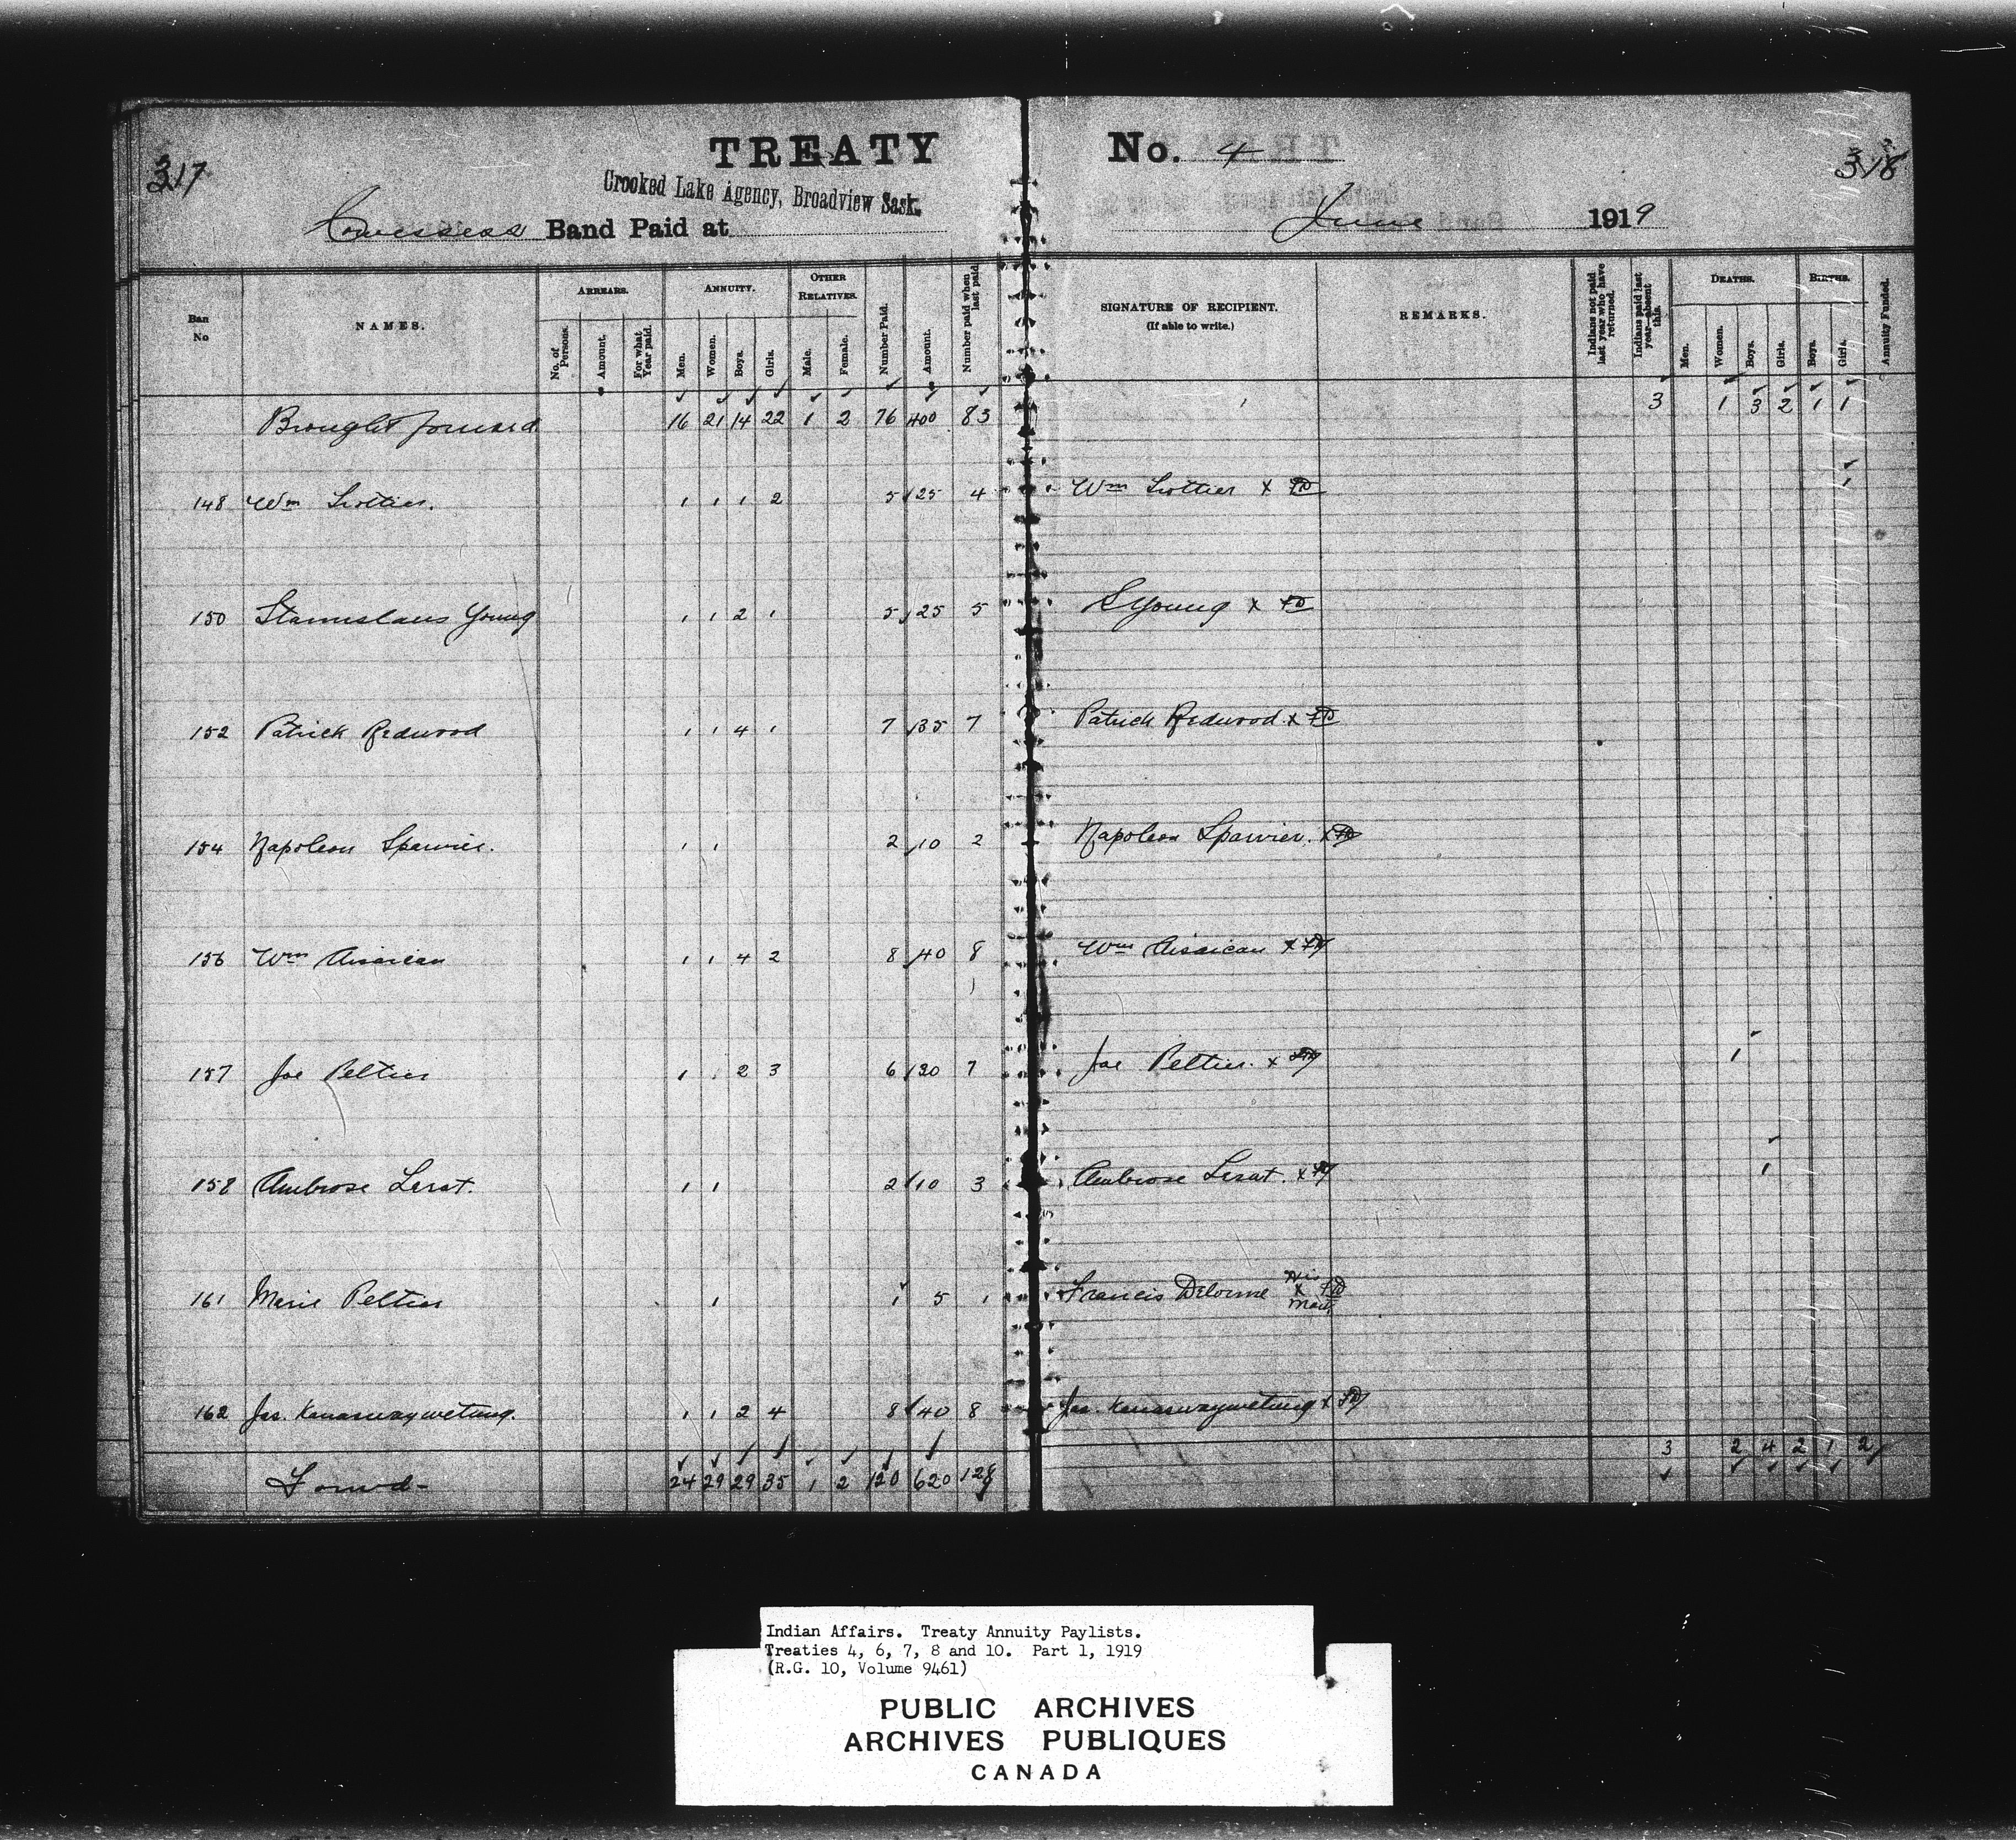 317
TREATY No. 4
318
Crooked Lake Agency, Broadview Sask.
Cowessess Band Paid at June 1919
Ban No
NAMES.
ARREARS.
No. of Persons.
Amount.
For what Year paid.
ANNUITY.
Men.
Women.
Boys.
Girls.
OTHER RELATIVES.
Male.
Female.
Number Paid.
Amount.
Number paid when last paid.
SIGNATURE OF RECIPIENT.
(If able to write.)
REMARKS.
Indians not paid last year who have returned.
Indians paid last year—absent this.
DEATHS.
Men.
Women.
Boys.
Girls.
BIRTHS.
Boys.
Girls.
Annuity Funded.
Brought forward 16 21 14 22 1 2 76 400 83 3 1 3 2 1 1
148 Wm Trottier. 1 1 1 2 5 25 4 Wm Trottier x 1
150 Stanislaus Young 1 1 2 1 5 25 5 S Young x
152 Patrick Redwood 1 1 4 1 7 35 7 Patrick Redwood x
154 Napoleon Sparvier. 1 1 2 10 2 Napoleon Sparvier. x
156 Wm Aisaican 1 1 4 2 8 40 8 Wm Aisaican x
157 Joe Peltier 1 2 3 6 30 7 Joe Peltier. x 1
158 Ambrose Lerat. 1 1 2 10 3 Ambrose Lerat. x 1
161 Marie Peltier 1 1 5 1 Francis Delorme His x Mark
162 Jas. Kanaswaywetung. 1 1 2 4 8 40 8 Jas. Kanaswaywetung x
Forwd- 24 29 29 35 1 2 120 620 128 3 2 4 2 1 2
Indian Affairs. Treaty Annuity Paylists.
Treaties 4, 6, 7, 8 and 10. Part 1, 1919
(R.G. 10, Volume 9461)
PUBLIC ARCHIVES
ARCHIVES PUBLIQUES
CANADA